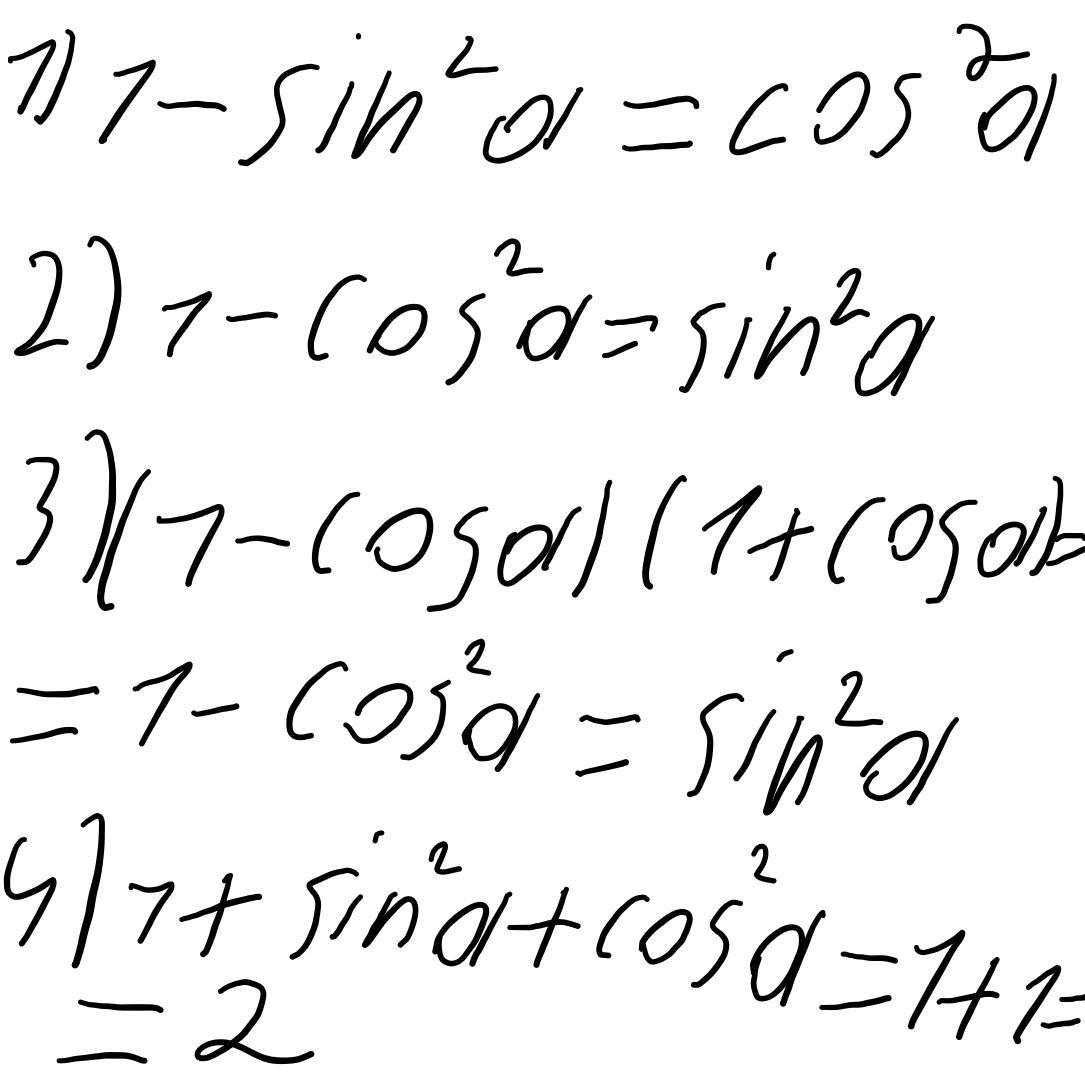 1) 1 - sin²a = cos²a
2) 1 - cos²a = sin²a
3) (1 - cosa) (1 + cosa) =
= 1 - cos²a = sin²a
4) 1 + sin²a + cos²a = 1 + 1 =
= 2